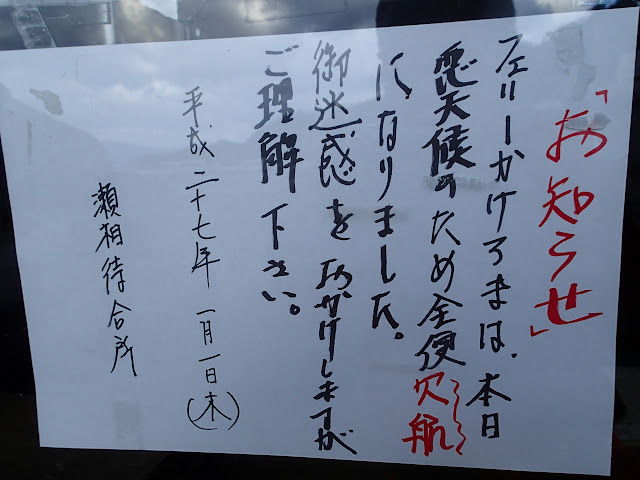 「お知らせ」
フェリーかけろまは、本日
悪天候のため全便欠航
になりました。
御迷惑をおかけしますが
ご理解下さい。
平成二十七年 一月一日(木)
瀬相待合所